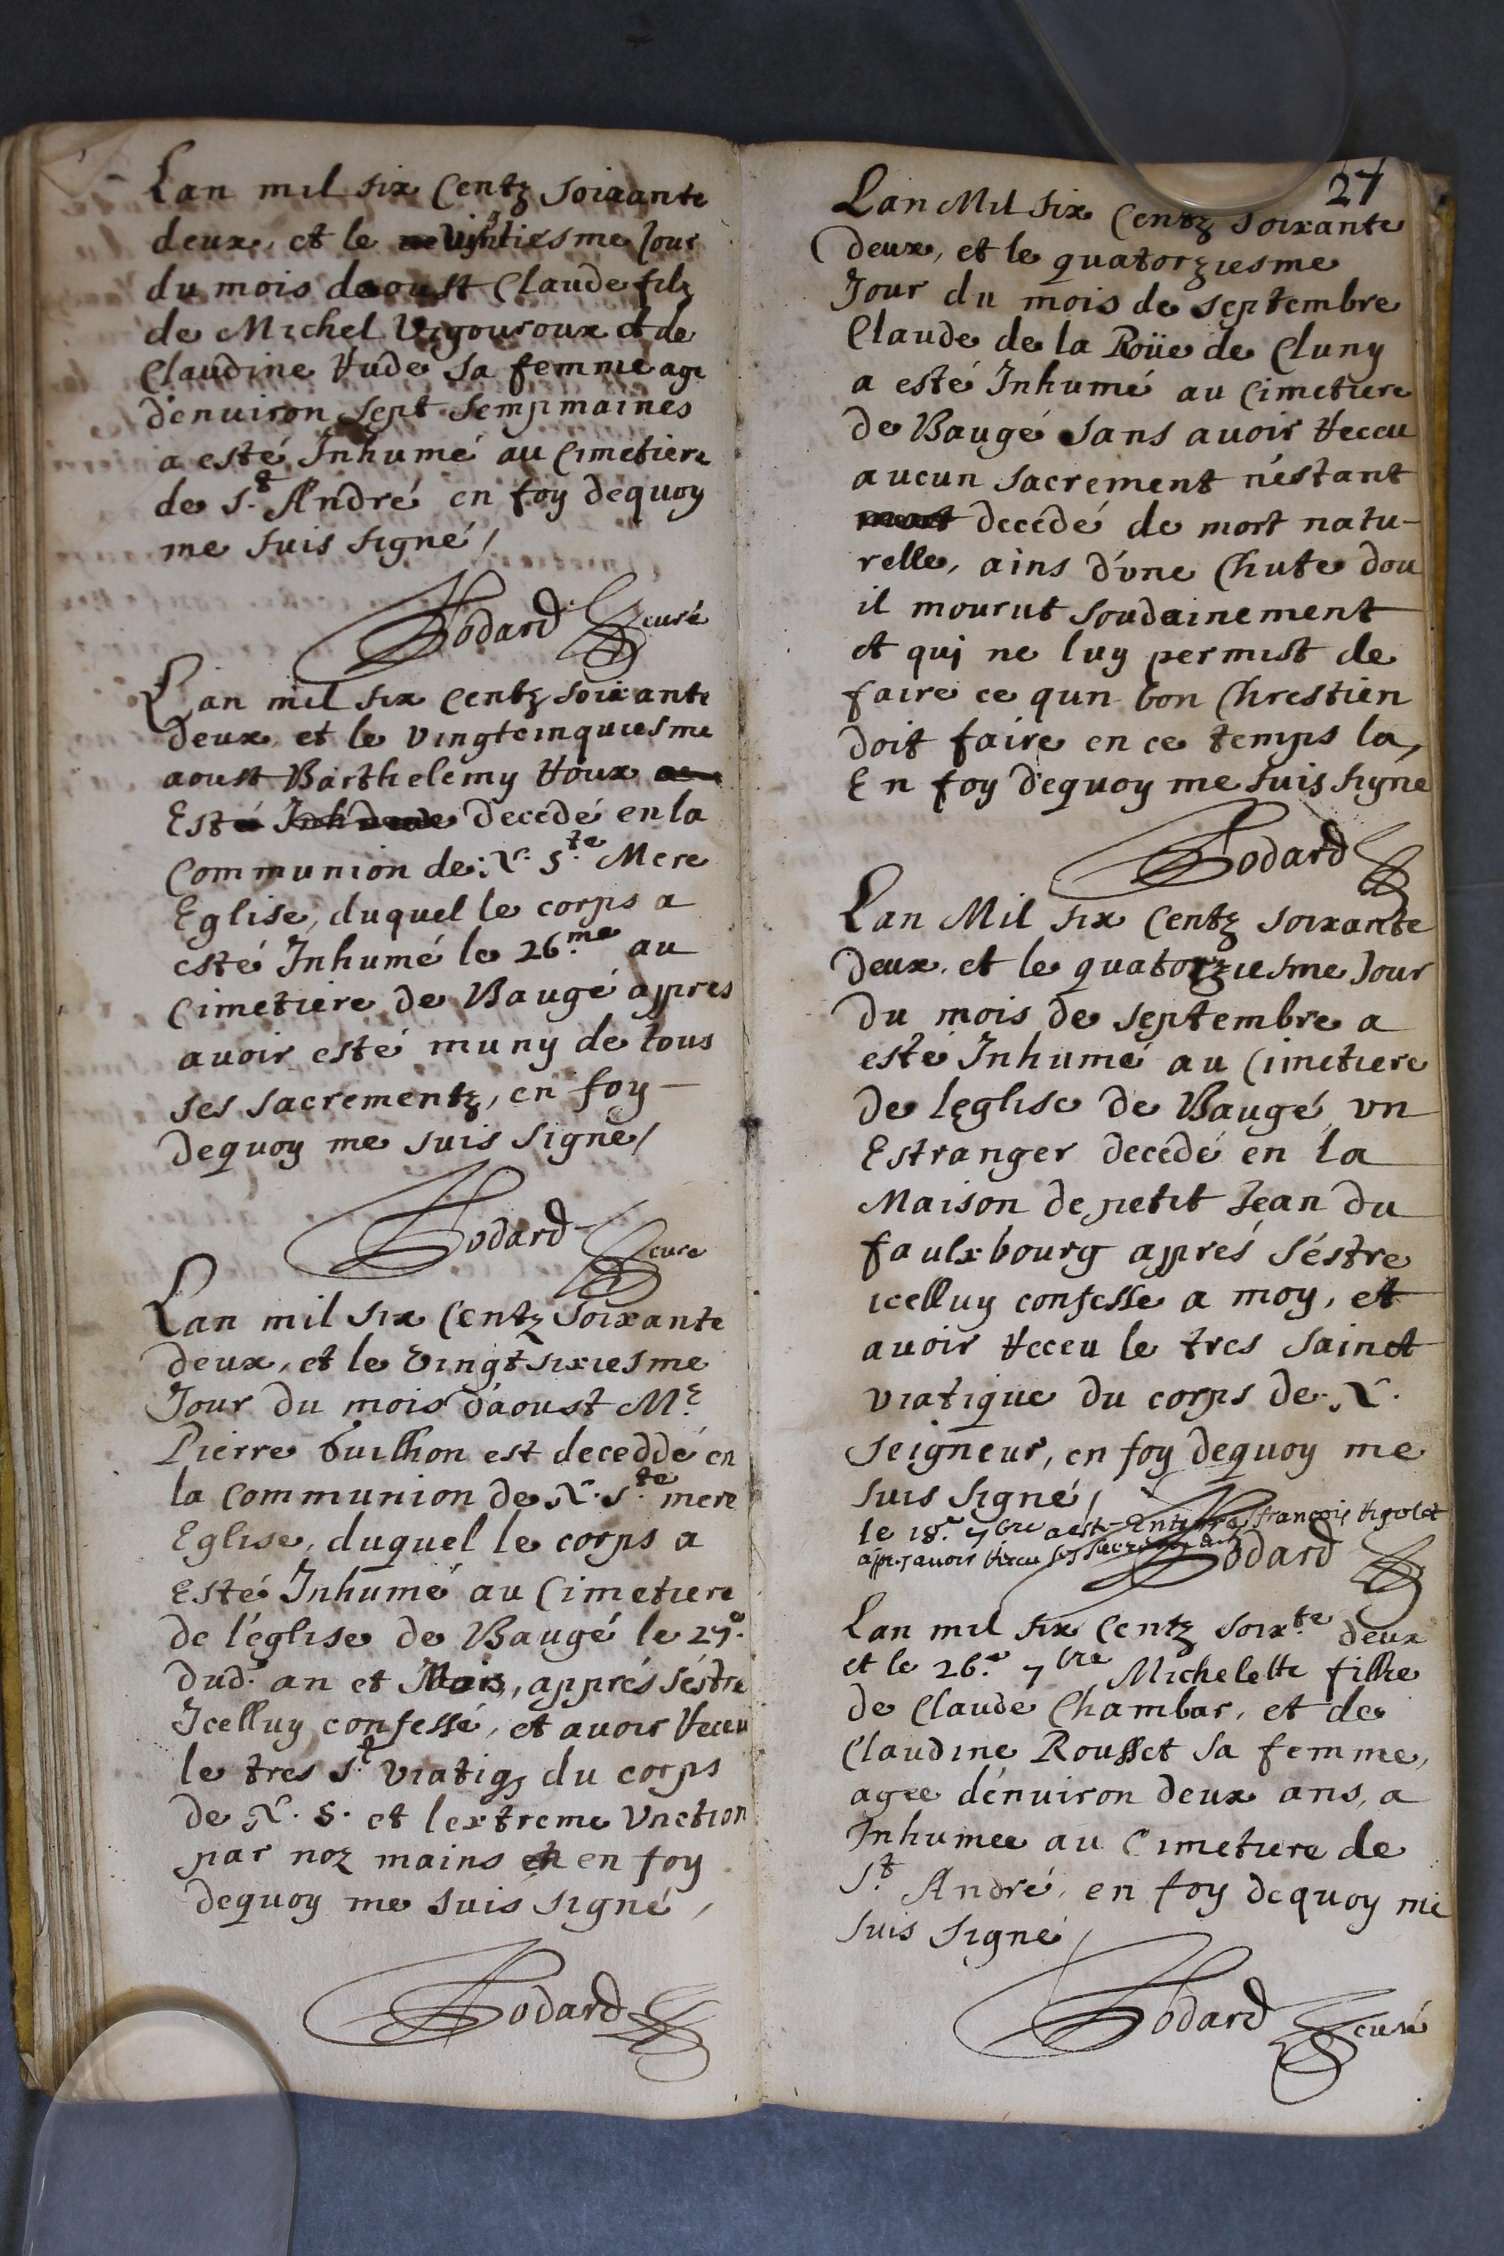 Lan mil six Centz soixante
deux, et le vingtiesme Jour
du mois daoust Claude filz
de Michel Vigouroux et de
Claudine Rude sa femme age
d'enuiron sept sempmaines
a esté Inhumé au Cimetiere
de St. André en foy dequoy
me suis signé /
Bodard curé
Lan mil six Centz soixante
deux et le vingtcinquiesme
aoust Barthelemy Roux
Est decedé en la
Communion de N. Ste. Mere
Eglise, duquel le corps a
esté Inhumé le 26.me au
Cimetiere de Baugé appres
avoir esté muny de tous
ses sacrementz, en foy
dequoy me suis signé /
Bodard curé
Lan mil six Centz soixante
deux, et le vingtsixiesme
Jour du mois d'aoust Me
Pierre Guilhon est deceddé en
la Communion de N. Ste. mere
Eglise, duquel le corps a
Esté Inhumé au Cimetiere
de l'église de Baugé le 27e.
dud. an et Mois, apprés s'éstre
Icelluy confessé, et avoir Receu
le tres St. viatiq du corps
de N. S. et lextreme Unction
par noz mains en foy
dequoy me suis signé,
Bodard
27
Lan Mil six Centz soixante
deux, et le quatorziesme
Jour du mois de septembre
Claude de la Roüe de Cluny
a esté Inhumé au Cimetiere
de Baugé sans avoir Receu
aucun sacrement n'estant
mort decedé de mort natu-
relle, ains d'vne Chute dou
il mourut soudainement
et qui ne luy permist de
faire ce qun bon Chrestien
doit faire en ce temps la,
En foy dequoy me suis signé
Bodard
Lan Mil six Centz soixante
deux, et le quatorziesme Jour
du mois de septembre a
esté Inhumé au Cimetiere
de leglise de Baugé vn
Estranger decedé en la
Maison de petit Jean du
faulxbourg apprés s'éstre
icelluy confessé a moy, et
avoir Receu le tres sainct
viatique du corps de N.
Seigneur, en foy dequoy me
suis signé /
le 18.e 7bre a esté Enterré françois Rigolet
appres avoir Receu ses sacrements
Bodard
Lan mil six Centz soix.te deux
et le 26.e 7bre Michelette fillie
de Claude Chambar, et de
Claudine Rousset sa femme,
agee d'enuiron deux ans, a
Inhumee au Cimetiere de
St. André, en foy dequoy me
suis signé /
Bodard curé